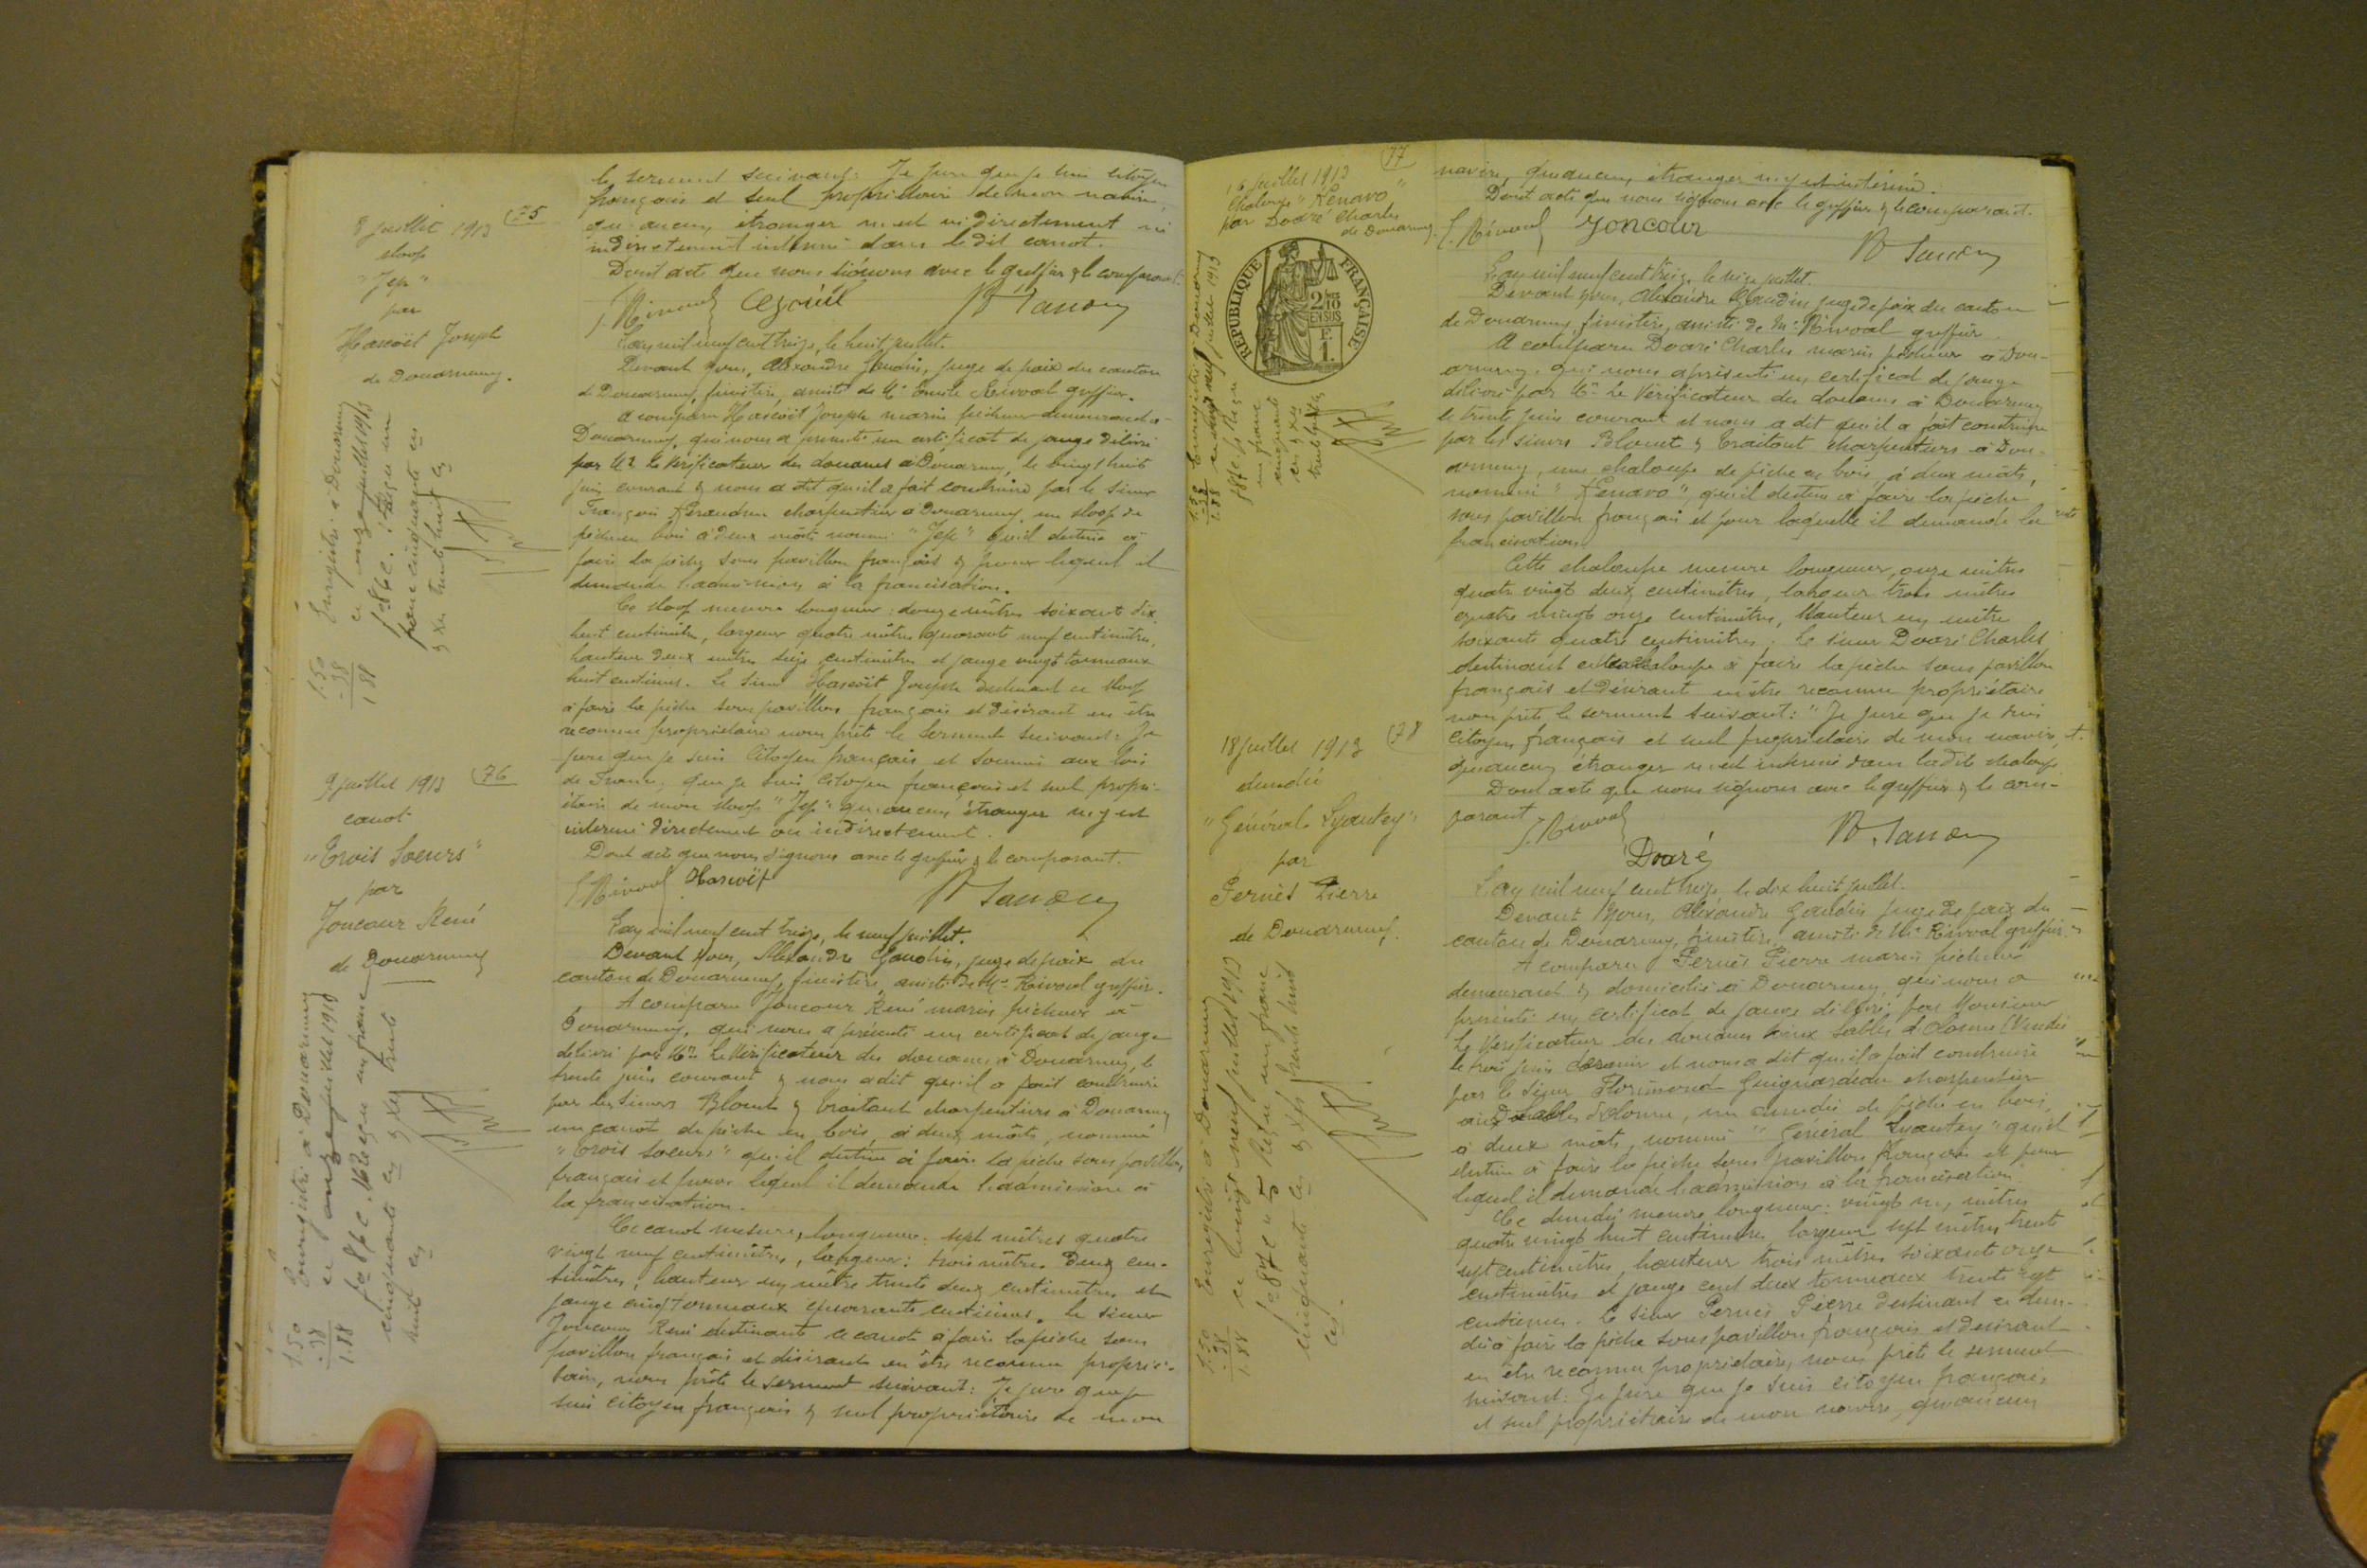 le serment suivant: Je jure que je suis citoyen
français et seul propriétaire de mon navire,
qu'aucun étranger n'est ni directement ni
indirectement intéressé dans le dit canot.
Dont acte que nous signons avec le greffier & le comparant.
8 juillet 1913
75
sloop
"Jep"
par
Hascoët Joseph
de Douarnenez.
Enregistré à Douarnenez
ce onze juillet 1913
f° 86 c. : Reçu un
franc cinquante c/es
& xes trente huit c/es
1.50
-38
1.88
L'an mil neuf cent treize, le huit juillet.
Devant nous, Alexandre Gaudin, juge de paix du canton
de Douarnenez, finistère, assisté de Me Emile Rivoal greffier.
A comparu Hascoët Joseph marin pêcheur demeurant à
Douarnenez, qui nous a présenté un certificat de jauge délivré
par Mr le Vérificateur des douanes à Douarnenez, le vingt huit
juin courant & nous a dit qu'il a fait construire par le sieur
François Kéraudren charpentier à Douarnenez, un sloop de
pêche en bois à deux mâts nommé "Jep" qu'il destine à
faire la pêche sous pavillon français & pour lequel il
demande l'admission à la francisation.
Ce sloop mesure longueur: douze mètres soixante dix
huit centimètres, largeur quatre mètres quarante neuf centimètres,
hauteur deux mètres seize centimètres et jauge vingt tonneaux
huit centièmes. Le sieur Hascoët Joseph destinant ce sloop
à faire la pêche sous pavillon français et désirant en être
reconnu propriétaire nous prête le serment suivant: Je
jure que je suis citoyen français et soumis aux lois
de France, que je suis citoyen français et seul propri-
étaire de mon sloop "Jep" qu'aucun étranger n'y est
intéressé directement ou indirectement.
Dont acte que nous signons avec le greffier & le comparant.
E. Rivoal Hascoët
9 juillet 1913
76
canot
"Trois Soeurs"
par
Joncour René
de Douarnenez
Enregistré à Douarnenez
ce onze juillet 1913
f° 86 c. Reçu un franc
cinquante c/es & xes trente
huit c/es
1.50
-38
1.88
L'an mil neuf cent treize, le neuf juillet.
Devant nous, Alexandre Gaudin, juge de paix du
canton de Douarnenez, finistère, assisté de Me Rivoal greffier.
A comparu Joncour René marin pêcheur à
Douarnenez, qui nous a présenté un certificat de jauge
délivré par Mr le Vérificateur des douanes à Douarnenez, le
trente juin courant & nous a dit qu'il a fait construire
par les sieurs Blouet & Traitant charpentiers à Douarnenez
un canot de pêche en bois, à deux mâts, nommé
"Trois Soeurs" qu'il destine à faire la pêche sous pavillon
français et pour lequel il demande l'admission à
la francisation.
Ce canot mesure, longueur: sept mètres quatre
vingt neuf centimètres, largeur: trois mètres deux cen-
timètres, hauteur un mètre trente deux centimètres et
jauge cinq tonneaux quarante centièmes. Le sieur
Joncour René destinant ce canot à faire la pêche sous
pavillon français et désirant en être reconnu proprié-
taire, nous prête le serment suivant: Je jure que je
suis citoyen français & seul propriétaire de mon
navire, qu'aucun étranger n'y est intéressé.
Dont acte que nous signons avec le greffier & le comparant.
E. Rivoal Joncour
77
16 juillet 1913
Chaloupe "Kenavo"
par Doaré Charles
de Douarnenez.
RÉPUBLIQUE FRANÇAISE
2/10es
EN SUS
F.
1.
L'an mil neuf cent treize le seize juillet.
Devant nous, Alexandre Gaudin juge de paix du canton
de Douarnenez, finistère, assisté de Me Rivoal greffier
A comparu Doaré Charles marin pêcheur à Dou-
arnenez, qui nous a présenté un certificat de jauge
délivré par Mr le Vérificateur des douanes à Douarnenez
le trente juin courant et nous a dit qu'il a fait construire
par les sieurs Blouet & Traitant charpentiers à Dou-
arnenez, une chaloupe de pêche en bois, à deux mâts,
nommée "Kenavo", qu'il destine à faire la pêche
sous pavillon français et pour laquelle il demande la
francisation.
Cette chaloupe mesure longueur, onze mètres
quatre vingt deux centimètres, largeur trois mètres
quatre vingt onze centimètres, hauteur un mètre
soixante quatre centimètres. Le sieur Doaré Charles
destinant cette chaloupe à faire la pêche sous pavillon
français et désirant en être reconnu propriétaire
nous prête le serment suivant: "Je jure que je suis
citoyen français et seul propriétaire de mon navire,
qu'aucun étranger n'est intéressé dans la dite chaloupe
Dont acte que nous signons avec le greffier & le com-
parant.
E. Rivoal
Doaré
18 juillet 1913
78
dundée
"Général Lyautey"
par
Pernès Pierre
de Douarnenez.
Enregistré à Douarnenez
ce vingt neuf juillet 1913
f° 87 c. 5 Reçu un franc
cinquante c/es & xes trente huit
c/es.
1.50
-38
1.88
L'an mil neuf cent treize le dix huit juillet.
Devant nous, Alexandre Gaudin juge de paix du
canton de Douarnenez, finistère, assisté de Me Rivoal greffier.
A comparu Pernès Pierre marin pêcheur
demeurant & domicilié à Douarnenez qui nous a
présenté un certificat de jauge délivré par Monsieur
le Vérificateur des douanes aux Sables d'Olonne (Vendée
le trois juin dernier et nous a dit qu'il a fait construire
par le sieur Florimond Guignardeau charpentier
aux Sables d'Olonne, un dundée de pêche en bois,
à deux mâts, nommé "Général Lyautey" qu'il
destine à faire la pêche sous pavillon français et pour
lequel il demande l'admission à la francisation.
Ce dundée mesure longueur: vingt un mètres
quatre vingt huit centimètres, largeur sept mètres trente
sept centimètres, hauteur trois mètres soixante onze
centimètres et jauge cent deux tonneaux trente sept
centièmes. Le sieur Pernès Pierre destinant ce dun-
dée à faire la pêche sous pavillon français et désirant
en être reconnu propriétaire, nous prête le serment
suivant: Je jure que je suis citoyen français
et seul propriétaire de mon navire, qu'aucun